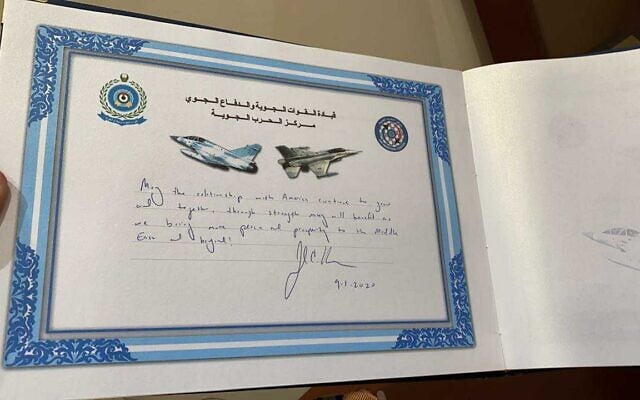 قيادة القوات الجوية والدفاع الجوي
مركز الحرب الجوية
May the relationship with America continue to grow
and together, through strength many will benefit as
we bring more peace and prosperity to the Middle
East and beyond!
9.1.2020